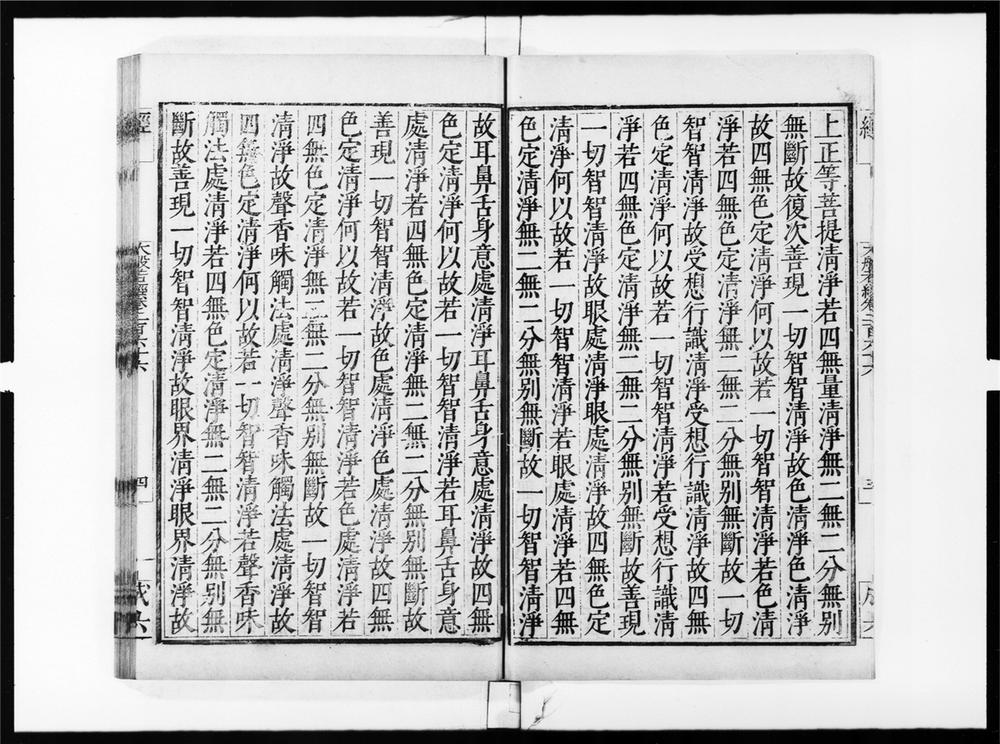 上正等菩提清淨若四無量清淨無二無二分無別
無斷故復次善現一切智智清淨故色清淨色清淨
故四無色定清淨何以故若一切智智清淨若色清
淨若四無色定清淨無二無二分無別無斷故一切
智智清淨故受想行識清淨受想行識清淨故四無
色定清淨何以故若一切智智清淨若受想行識清
淨若四無色定清淨無二無二分無別無斷故善現
一切智智清淨故眼處清淨眼處清淨故四無色定
清淨何以故若一切智智清淨若眼處清淨若四無
色定清淨無二無二分無別無斷故一切智智清淨
故耳鼻舌身意處清淨耳鼻舌身意處清淨故四無
色定清淨何以故若一切智智清淨若耳鼻舌身意
處清淨若四無色定清淨無二無二分無別無斷故
善現一切智智清淨故色處清淨色處清淨故四無
色定清淨何以故若一切智智清淨若色處清淨若
四無色定清淨無二無二分無別無斷故一切智智
清淨故聲香味觸法處清淨聲香味觸法處清淨故
四無色定清淨何以故若一切智智清淨若聲香味
觸法處清淨若四無色定清淨無二無二分無別無
斷故善現一切智智清淨故眼界清淨眼界清淨故
經
大般若經卷二百六十六
四